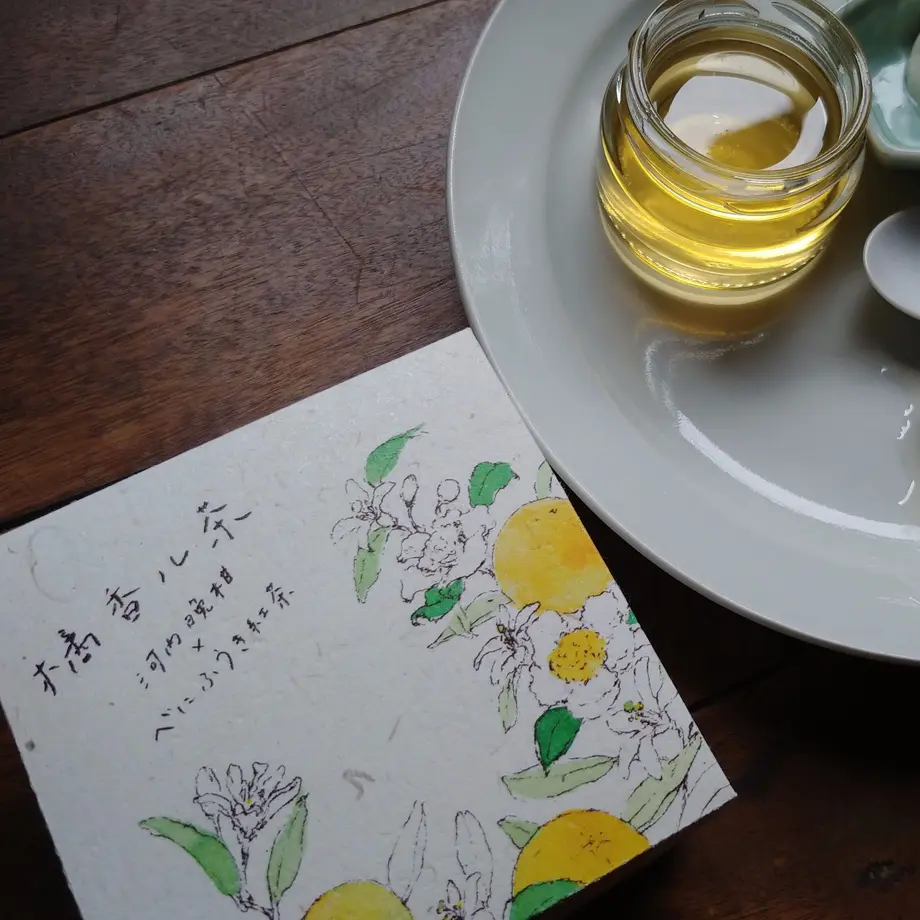 橘香ル茶
河内晩柑
×
べにふうき紅茶